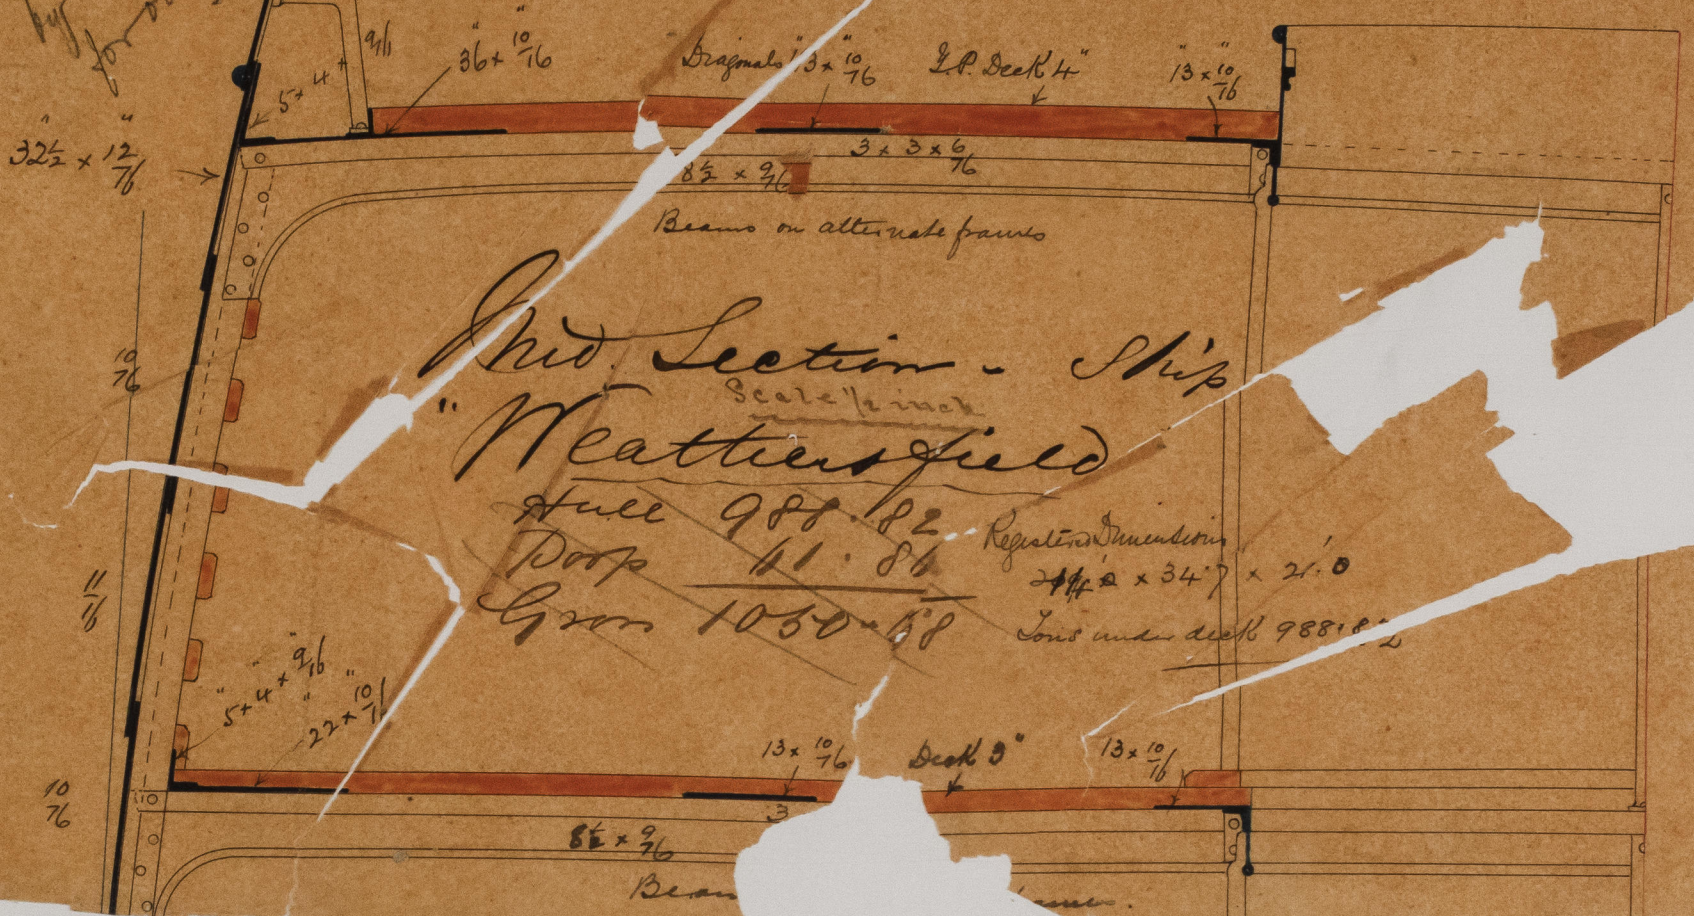 by
for
9/16
5" × 4"
36" × 10/16"
Diagonals 13" × 10/16
Y.P. Deck 4"
13" × 10/16"
32½" × 12/16"
3 × 3 × 6/16
8½ × 9/16
Beams on alternate frames
Mid. Section - Ship
Scale 1/2 inch
"Weathersfield
10/16
Hull 988.82
Poop 61.86
Gross 1050.68
Registered Dimensions
× 34.7 × 21.0
Tons under deck 988.82
11/16
5" × 4" × 9/16"
22" × 10/16"
13 × 10/16
Deck 3"
13 × 10/16
10/16
3
8½ × 9/16
Beam